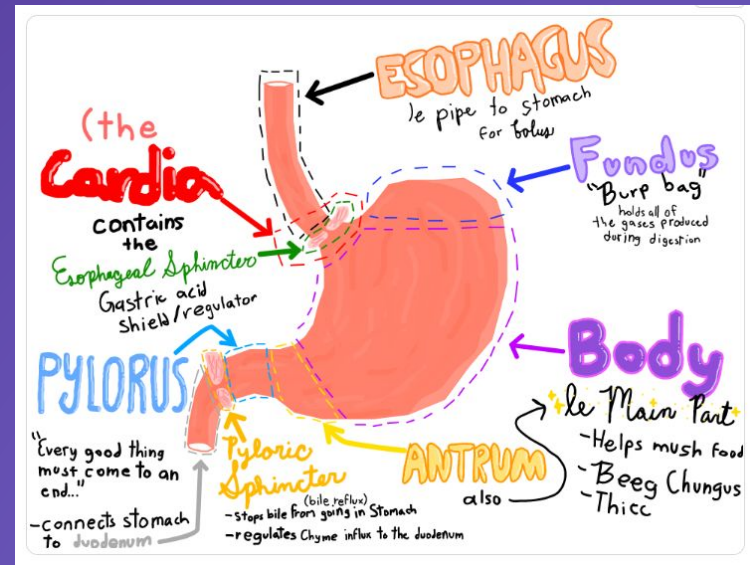 ESOPHAGUS
le pipe to stomach
for bolus
(the
Cardia
contains
the
Esophageal Sphincter
Gastric acid
shield/regulator
Fundus
"Burp bag"
holds all of
the gases produced
during digestion
PYLORUS
"Every good thing
must come to an
end..."
-connects stomach
to duodenum
Pyloric
Sphincter
(bile reflux)
-Stops bile from going in Stomach
-regulates Chyme influx to the duodenum
ANTRUM
also
Body
le Main Part
-Helps mush food
-Beeg Chungus
-Thicc